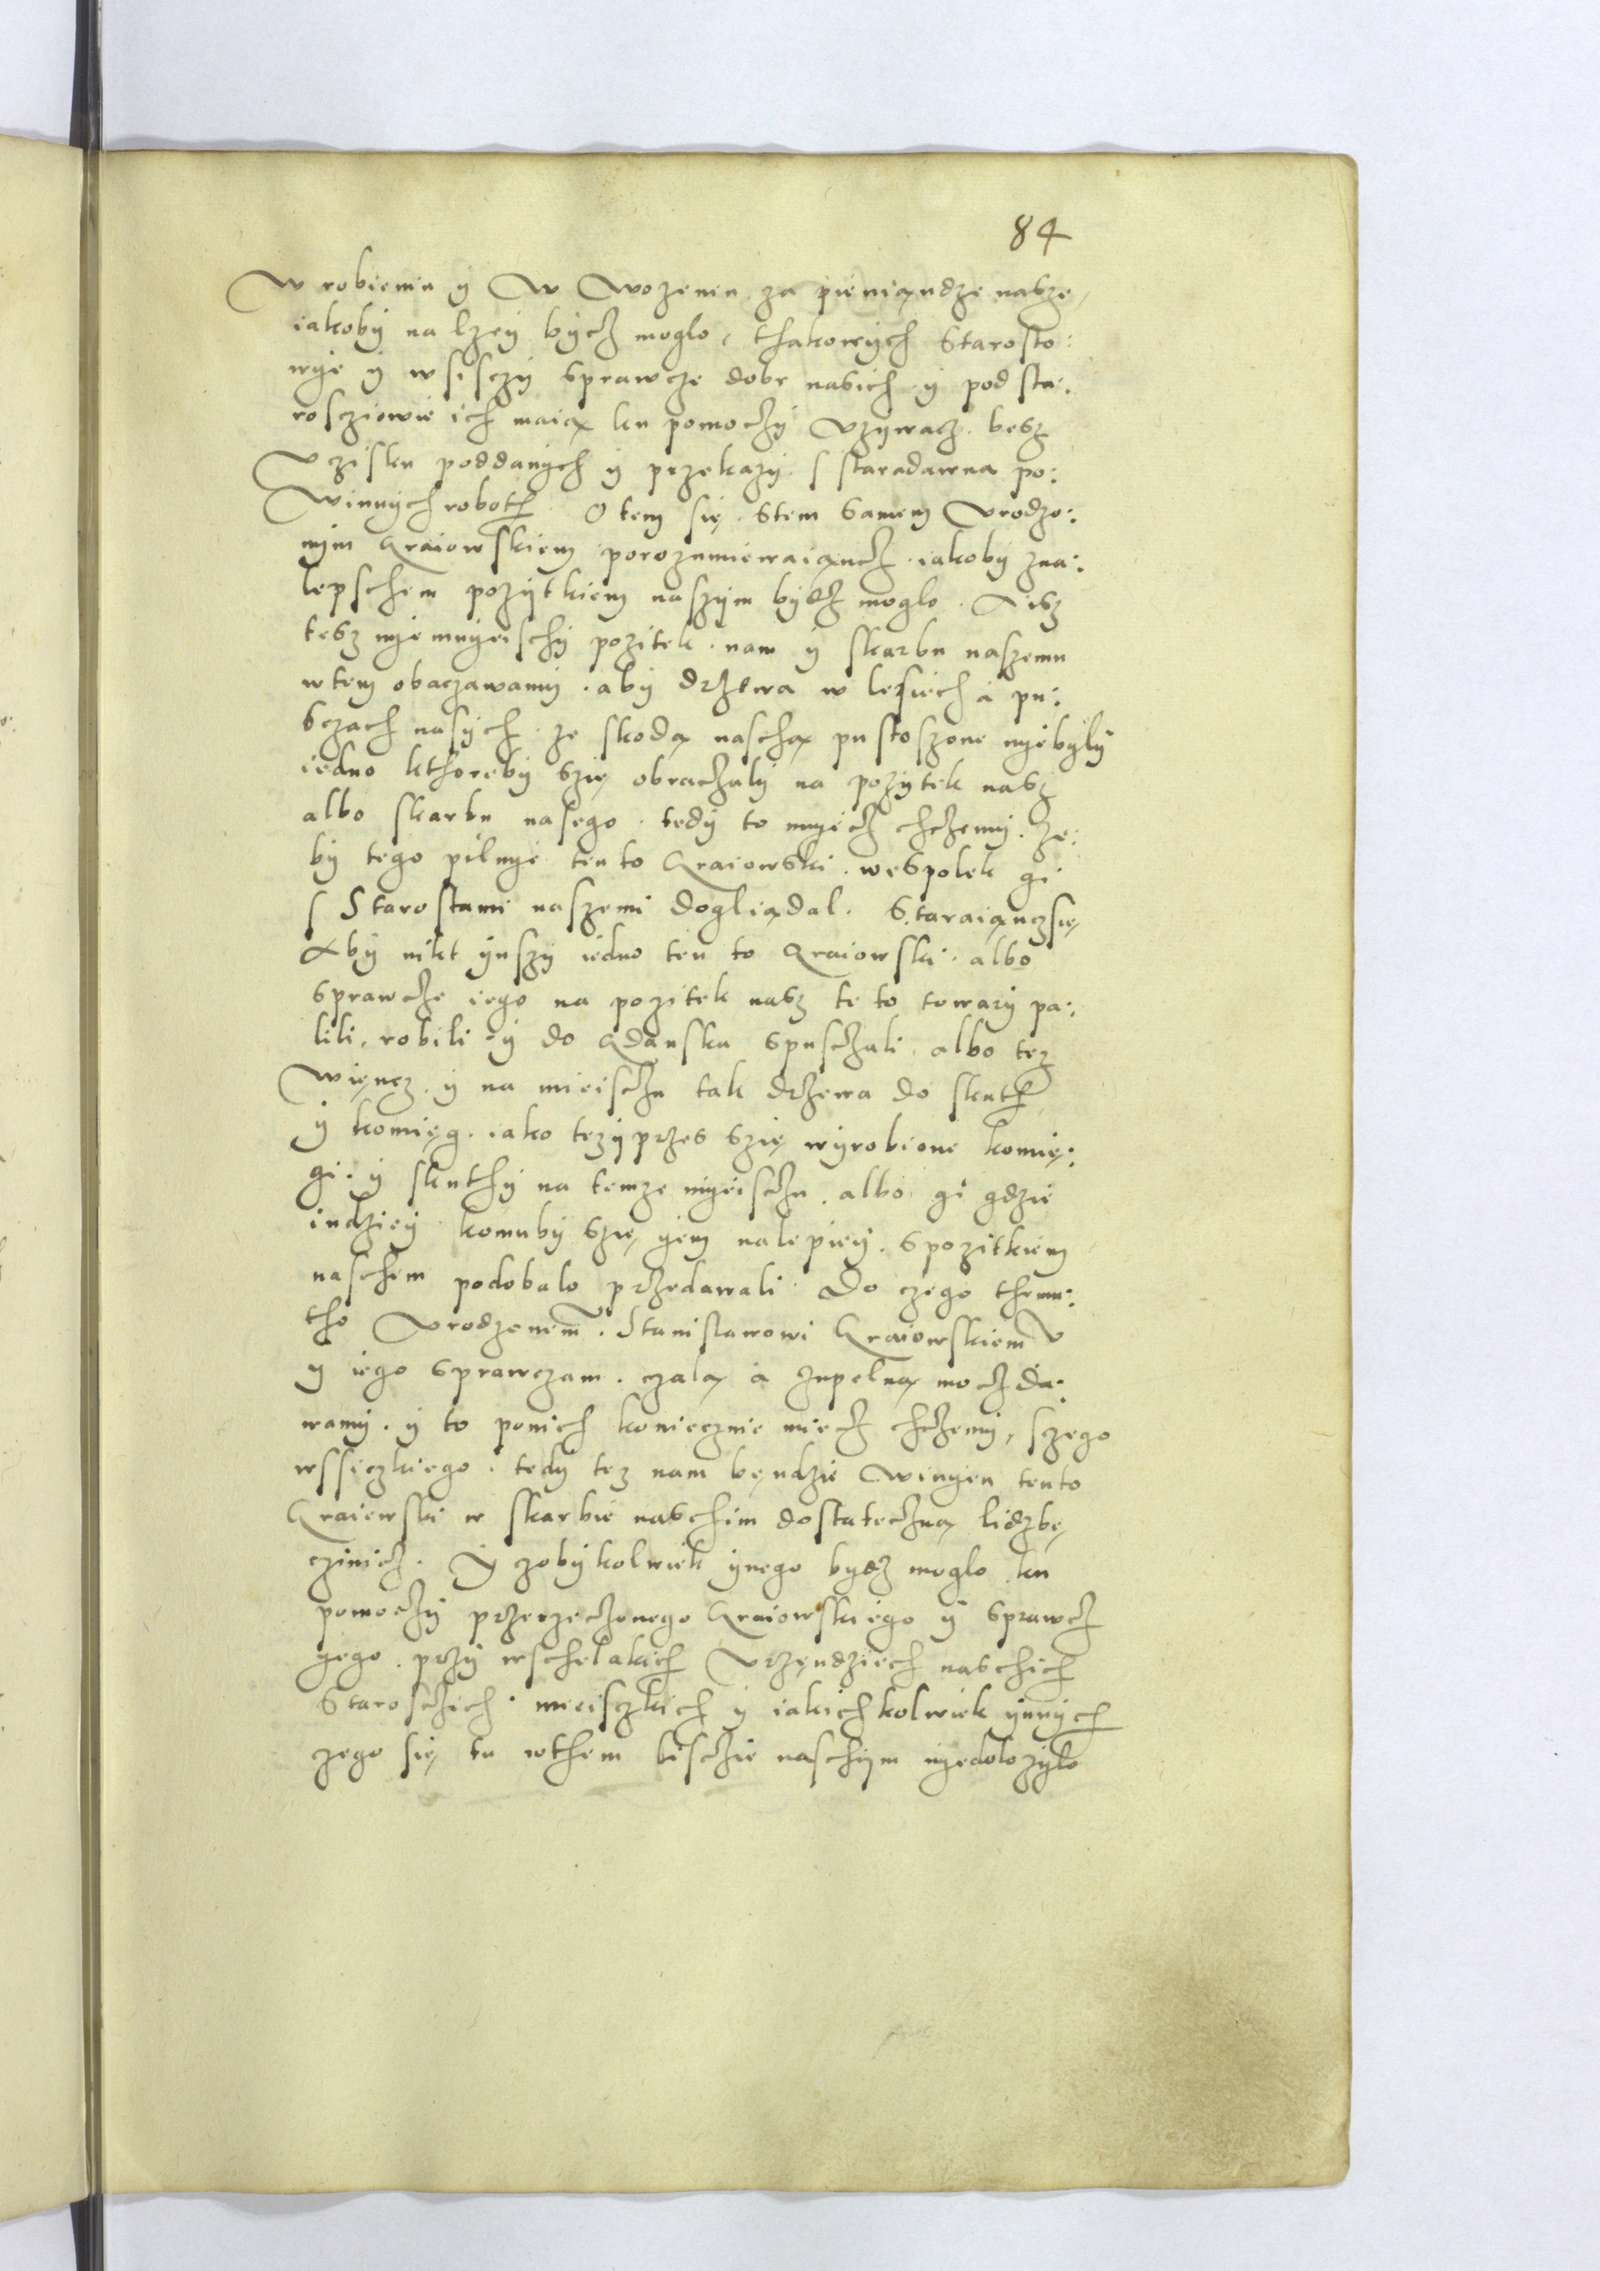 84
w robieniu ÿ w wozeniu za pieniąndze nasze,
iakobÿ na lzeÿ bÿcz moglo, thakowÿch Starosto:
wÿe ÿ wsisczÿ sprawcze dobr nasich ÿ podsta:
rosczowie ich maią ku pomoczÿ vzÿwacz. besz
vzisku poddanÿch ÿ przekazÿ s staradawna po:
winnÿch roboth. O tem się stem samem vrodzo:
nÿm Graiowskiem porozumiewaiącz. iakobÿ zna:
lepschem pozÿtkiem naszÿm bÿdz moglo. Aisz
tesz nÿe mnÿeischÿ pozitek nam ÿ skarbu naszemu
wtem obaczawamÿ. abÿ drzewa w lesiech á pu:
sczach nasÿch ze skodą naschą pustoszone nÿebÿlÿ
iedno kthorebÿ szię obraczalÿ na pozÿtek nasz
albo skarbu nasego. tedÿ to mÿecz chczemÿ. ze:
bÿ tego pilnÿe tento Graiowski wespolek gi
s Starostami naszemi doglią­dal. Staraiąnczsię
abÿ nikt ÿnszÿ iedno ten to Graiowski. albo
sprawcze iego na pozitek nasz te to towarÿ pa:
lili, robili ÿ do Gdanska spusczali. albo tez
więncz ÿ na mieisczu tak drzewa do skuth
ÿ komięg. iako tezÿ przes szię wÿrobione komię:
gi. ÿ skuthÿ na temze mÿeisczu. albo gi gdzie
indzieÿ komubÿ szię gem nalepieÿ. spozitkiem
naschem podobalo przedawali. Do czego themu:
tho vrodzonemu. Stanislawowi Graiowskiemu
ÿ iego sprawczam. czalą á zupelną mocz da:
wamÿ. ÿ to ponich koniecznie miecz chczemÿ, sczego
wssiczkiego. tedÿ tez nam będzie winÿen tento
Graiewski w skarbie naschim dostateczną lidzbę
czinicz. Ÿ czobÿkolwiek ÿnego bÿdz moglo ku
pomoczÿ przerzeczonego Graiowskiego ÿ sprawcz
gego. przÿ wschelakich vrzęndziech naschich
Staroscich. mieisczkich ÿ iakichkolwiek ÿnnÿch
czego się tu wthem lisczie naschÿm nÿedolozÿlo